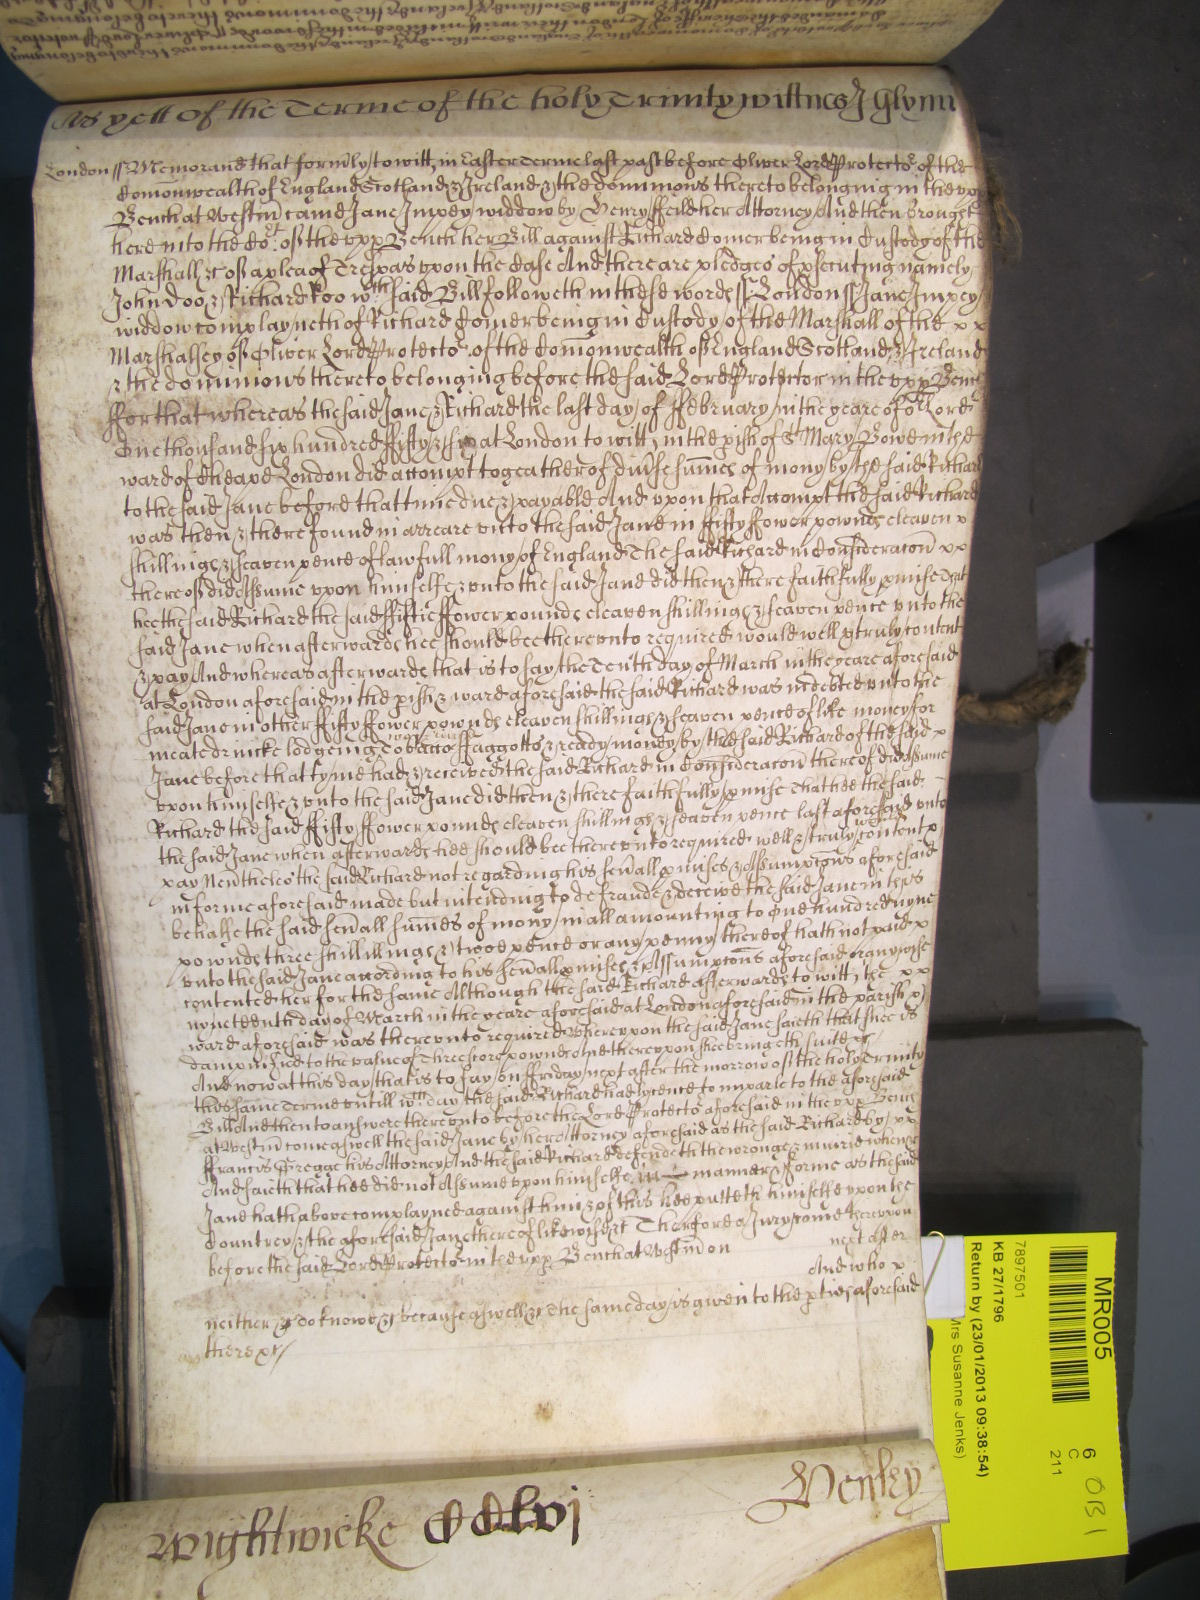 As yett of the Terme of the holy Trinity wittnes J Glynn
London ss Memorand that formly to witt in Easter Terme last past before Oliver Lord Protector of the
Comonwealth of England Scotland & Ireland & the dominions thereto belonging in the upp
Bench at Westm came Jane Impey widdow by Henry ffeild her Attorney And then brought
here into the Cot of the upp Bench her Bill against Richard Comer being in Custody of the
Marshall &c of a plea of Trespas upon the Case And there are pledges of psecuting namely
John Doo & Richard Roo wch said Bill followeth in these words ss London ss Jane Impey
widdow complayneth of Richard Comer being in Custody of the Marshall of the x x
Marshalsey of Oliver Lord Protector of the Comonwealth of England Scotland & Ireland
& the dominions thereto belonging before the said Lord Protector in the upp Bench
ffor that whereas the said Jane & Richard the last day of ffebruary in the yeare of or Lord
One thousand six hundred ffifty & six at London to witt in the pish of St Mary Bowe in the
ward of Cheape London did accompt togeather of divse sumes of mony by the said Richard
to the said Jane before that time due & payable And upon that Accompt the said Richard
was then & there found in arreare unto the said Jane in ffifty ffower pownds eleaven x
shillings & seaven pence of lawfull mony of England The said Richard in Consideracon x x
thereof did Assume upon himselfe & unto the said Jane did then & there faithfully pmise That
hee the said Richard the said ffiftie ffower pounds eleaven shillings & seaven pence unto the
said Jane when afterwards hee should bee thereunto required would well & truly content
& pay And whereas afterwards that is to say the Tenth day of March in the yeare aforesaid
at London aforesaid in the pish & ward aforesaid the said Richard was indebted unto the
said Jane in other ffifty ffower pownds eleaven shillings & seaven pence of like money for
meate drinke lodgeing Tobacco ffaggotts & ready money by the said Richard of the said x
Jane before that tyme had & received the said Richard in Consideracon thereof did Assume
upon himselfe & unto the said Jane did then & there faithfully pmise That hee the said
Richard the said ffifty ffower pounds eleaven shillings & seaven pence last aforesaid unto
the said Jane when afterwards hee should bee thereunto required would well & truly content &
pay Nevtheles the said Richard not regarding his sevall pmises & Assumptions aforesaid
in forme aforesaid made but intending to defraude & deceive the said Jane in this
behalfe the said sevall sumes of mony in all amounting to One hundred nyne
pownds three shillings & twoe pence or any penny thereof hath not paid x
unto the said Jane according to his sevall pmises & Assumptions aforesaid or any wise
contented her for the same Although the said Richard afterwards to witt the x x
nyneteenth day of March in the yeare aforesaid at London aforesaid in the parish &
ward aforesaid was thereunto required Whereupon the said Jane saieth that shee is
dampnified to the value of Threescore pownds And thereupon shee bringeth suite &c
And now at this day that is to say on ffriday next after the morrow of the holy Trinity
this same Terme untill wch day the said Richard had lycence to imparle to the aforesaid
Bill And then to answere thereunto before the Lord Protector aforesaid in the upp Bench
at Westm come aswell the said Jane by her Attorney aforesaid as the said Richard by x x
ffrancis Gregge his Attorney And the said Richard defendeth the wronge & iniurie when &c
And saieth that hee did not Assume upon himselfe in manner & forme as the said
Jane hath above complayned against him & of this hee putteth himselfe upon the
Countrey & the aforesaid Jane thereof likewise &c Therefore a Jury come thereupon
before the said Lord Protector in the upp Bench at Westm on next after
And who x
neither &c to knowe &c because aswell &c The same day is given to the pties aforesaid
there &c
Wightwicke CCLvj
Henley
MR005
7897501
KB 27/1796
Return by (23/01/2013 09:38:54)
Mrs Susanne Jenks)
6
C
211
OB1